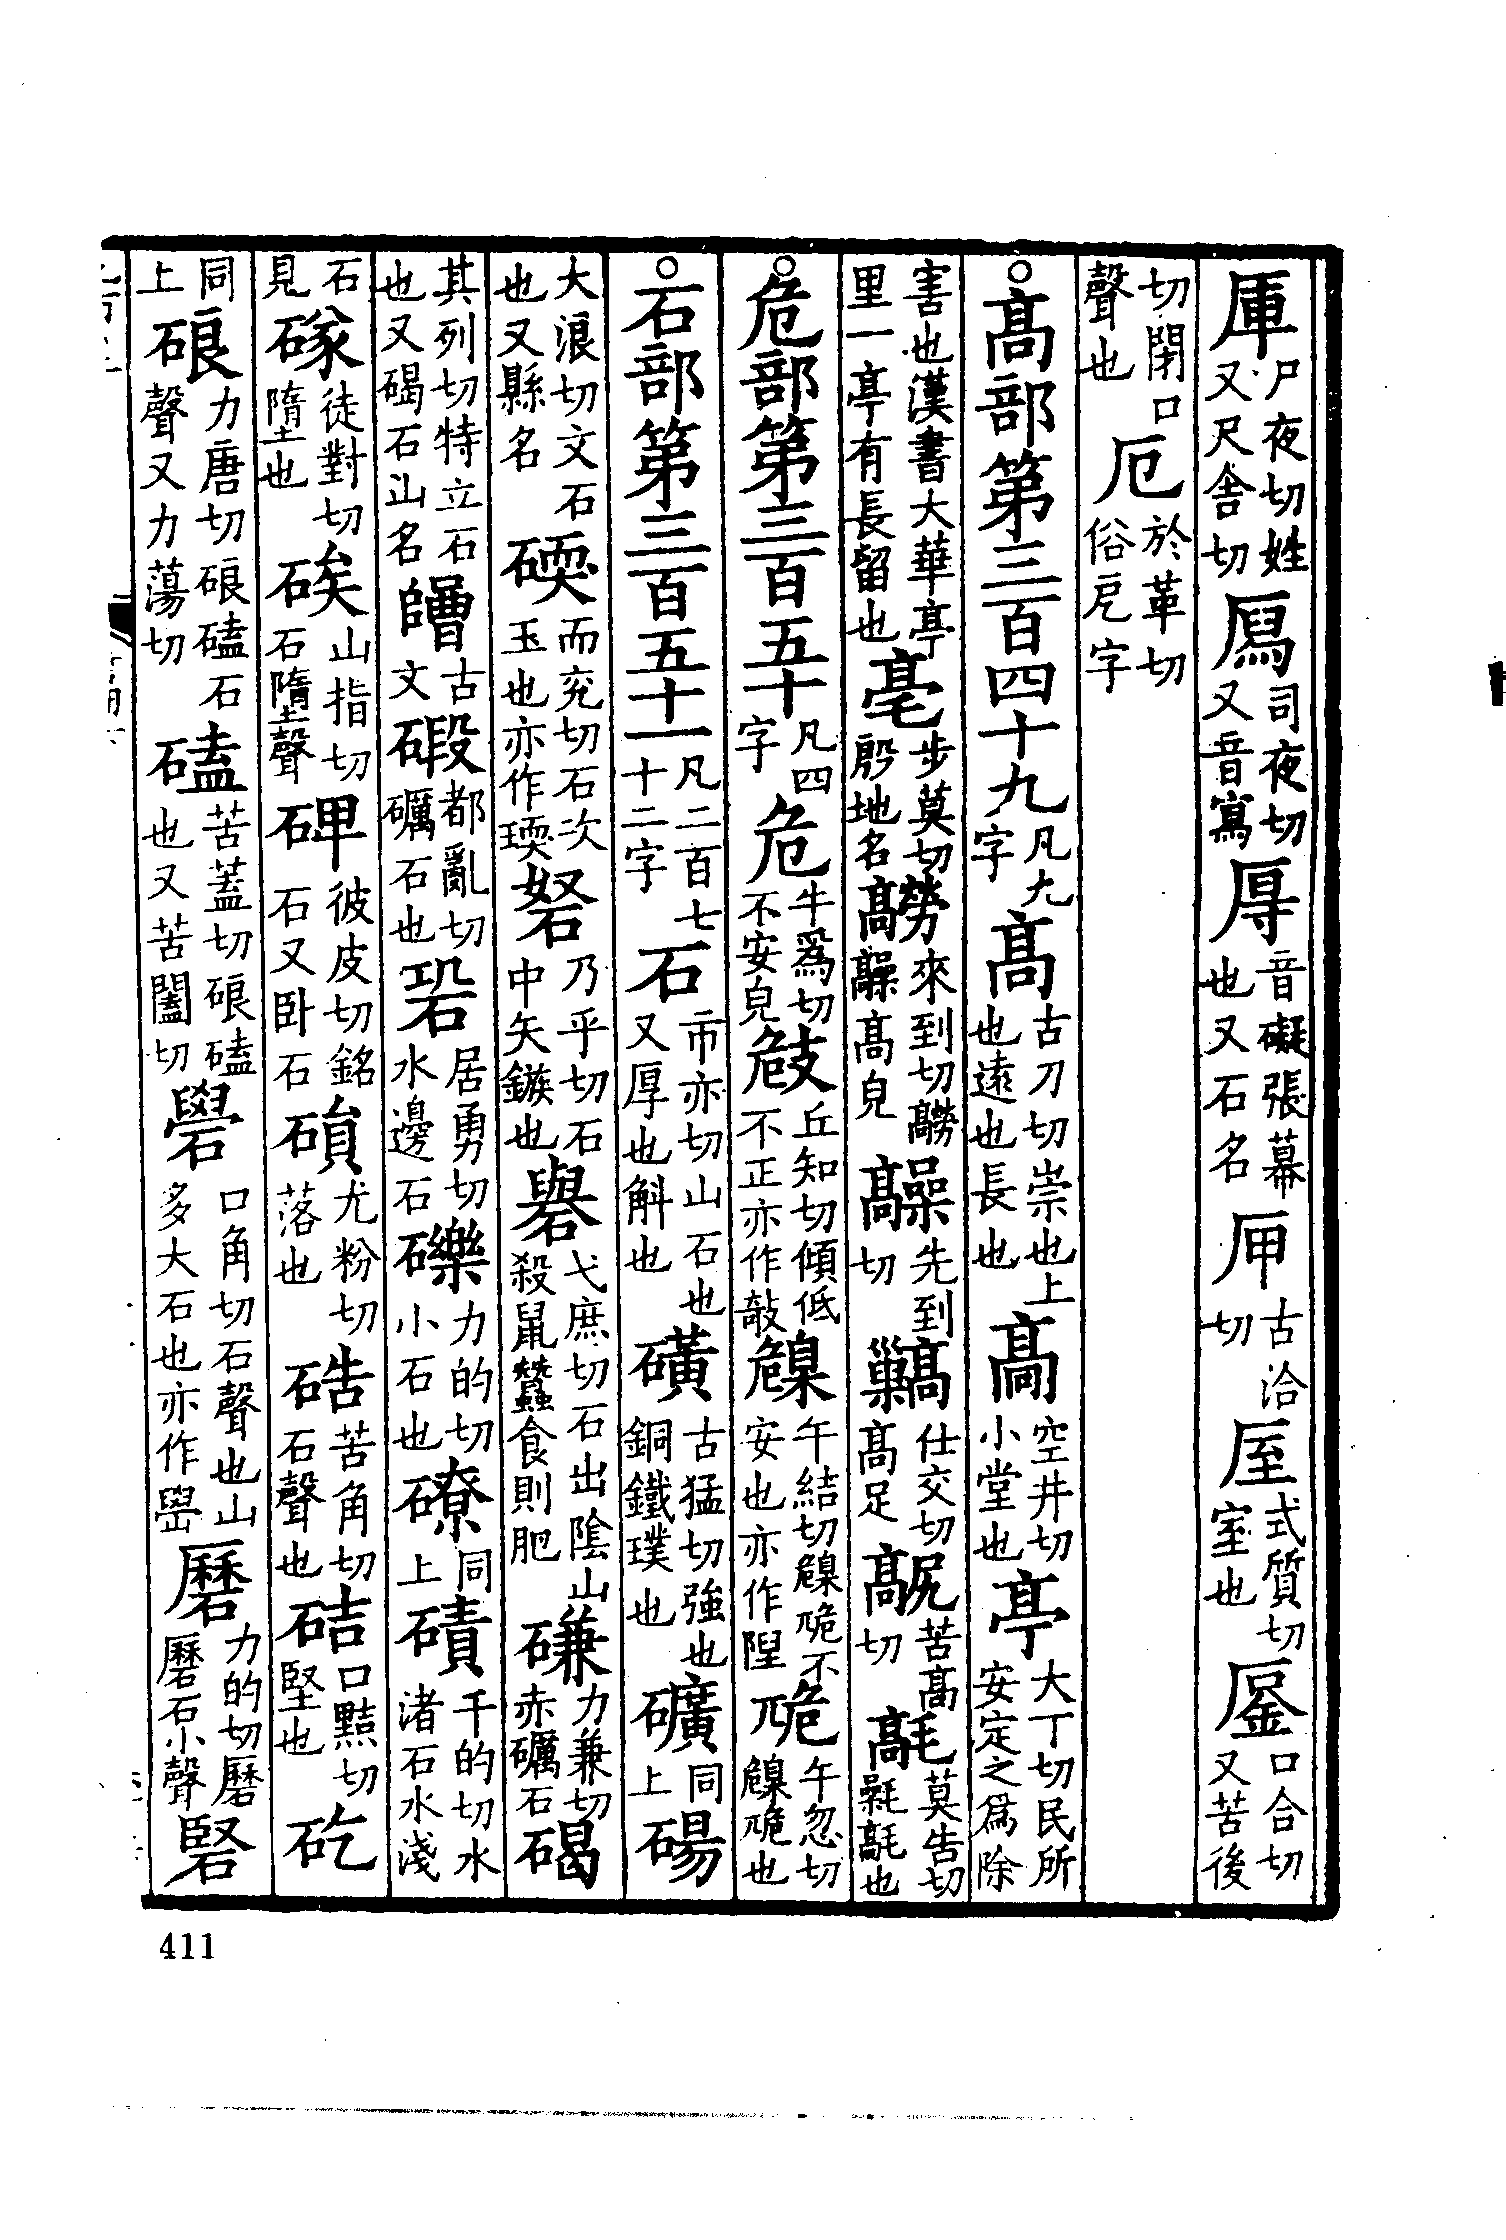 厙尸夜切姓又尺舍切㕐司夜切又音寫㕆音礙張幕也又石名㕅古洽切厔式質切室也㕋口合切又苦後
切閉口聲也厄於革切俗戹字
○髙部第三百四十九凡九字髙古刀切崇也上也遠也長也髚空井切小堂也亭大丁切民所安定之爲除
害也漢書大華亭里一亭有長留也亳步莫切殷地名髝來到切髝髞髙皃髞先到切䯨仕交切髙足䯧苦髙切髦莫告切㲱髦也
○危部第三百五十凡四字危牛爲切不安皃攲丘知切傾低不正亦作敧臲午結切臲卼不安也亦作隉卼午忽切臲卼也
○石部第三百五十一凡二百七十二字石市亦切山石也又厚也斛也磺古猛切強也銅鐵璞也礦同上碭
大浪切文石也又縣名碝而兖切石次玉也亦作瑌砮乃乎切石中矢鏃也礜弋庶切石出陰山殺鼠蠶食則肥磏力兼切赤礪石碣
其列切特立石也又碣石山名𥗁古文碫都亂切礪石也碧居勇切水邊石礫力的切小石也𥕞同上磧千的切水渚石水淺
石見䃍徒對切墮也碞山指切石墮聲碑彼皮切銘石又卧石磒尤粉切落也硞苦角切石聲也硈口黠切堅也矻
同上硠力唐切硠磕石聲又力蕩切磕苦蓋切硠磕也又苦闔切礐口角切石聲也山多大石也亦作嶨厤力的切磿石小聲硻
411